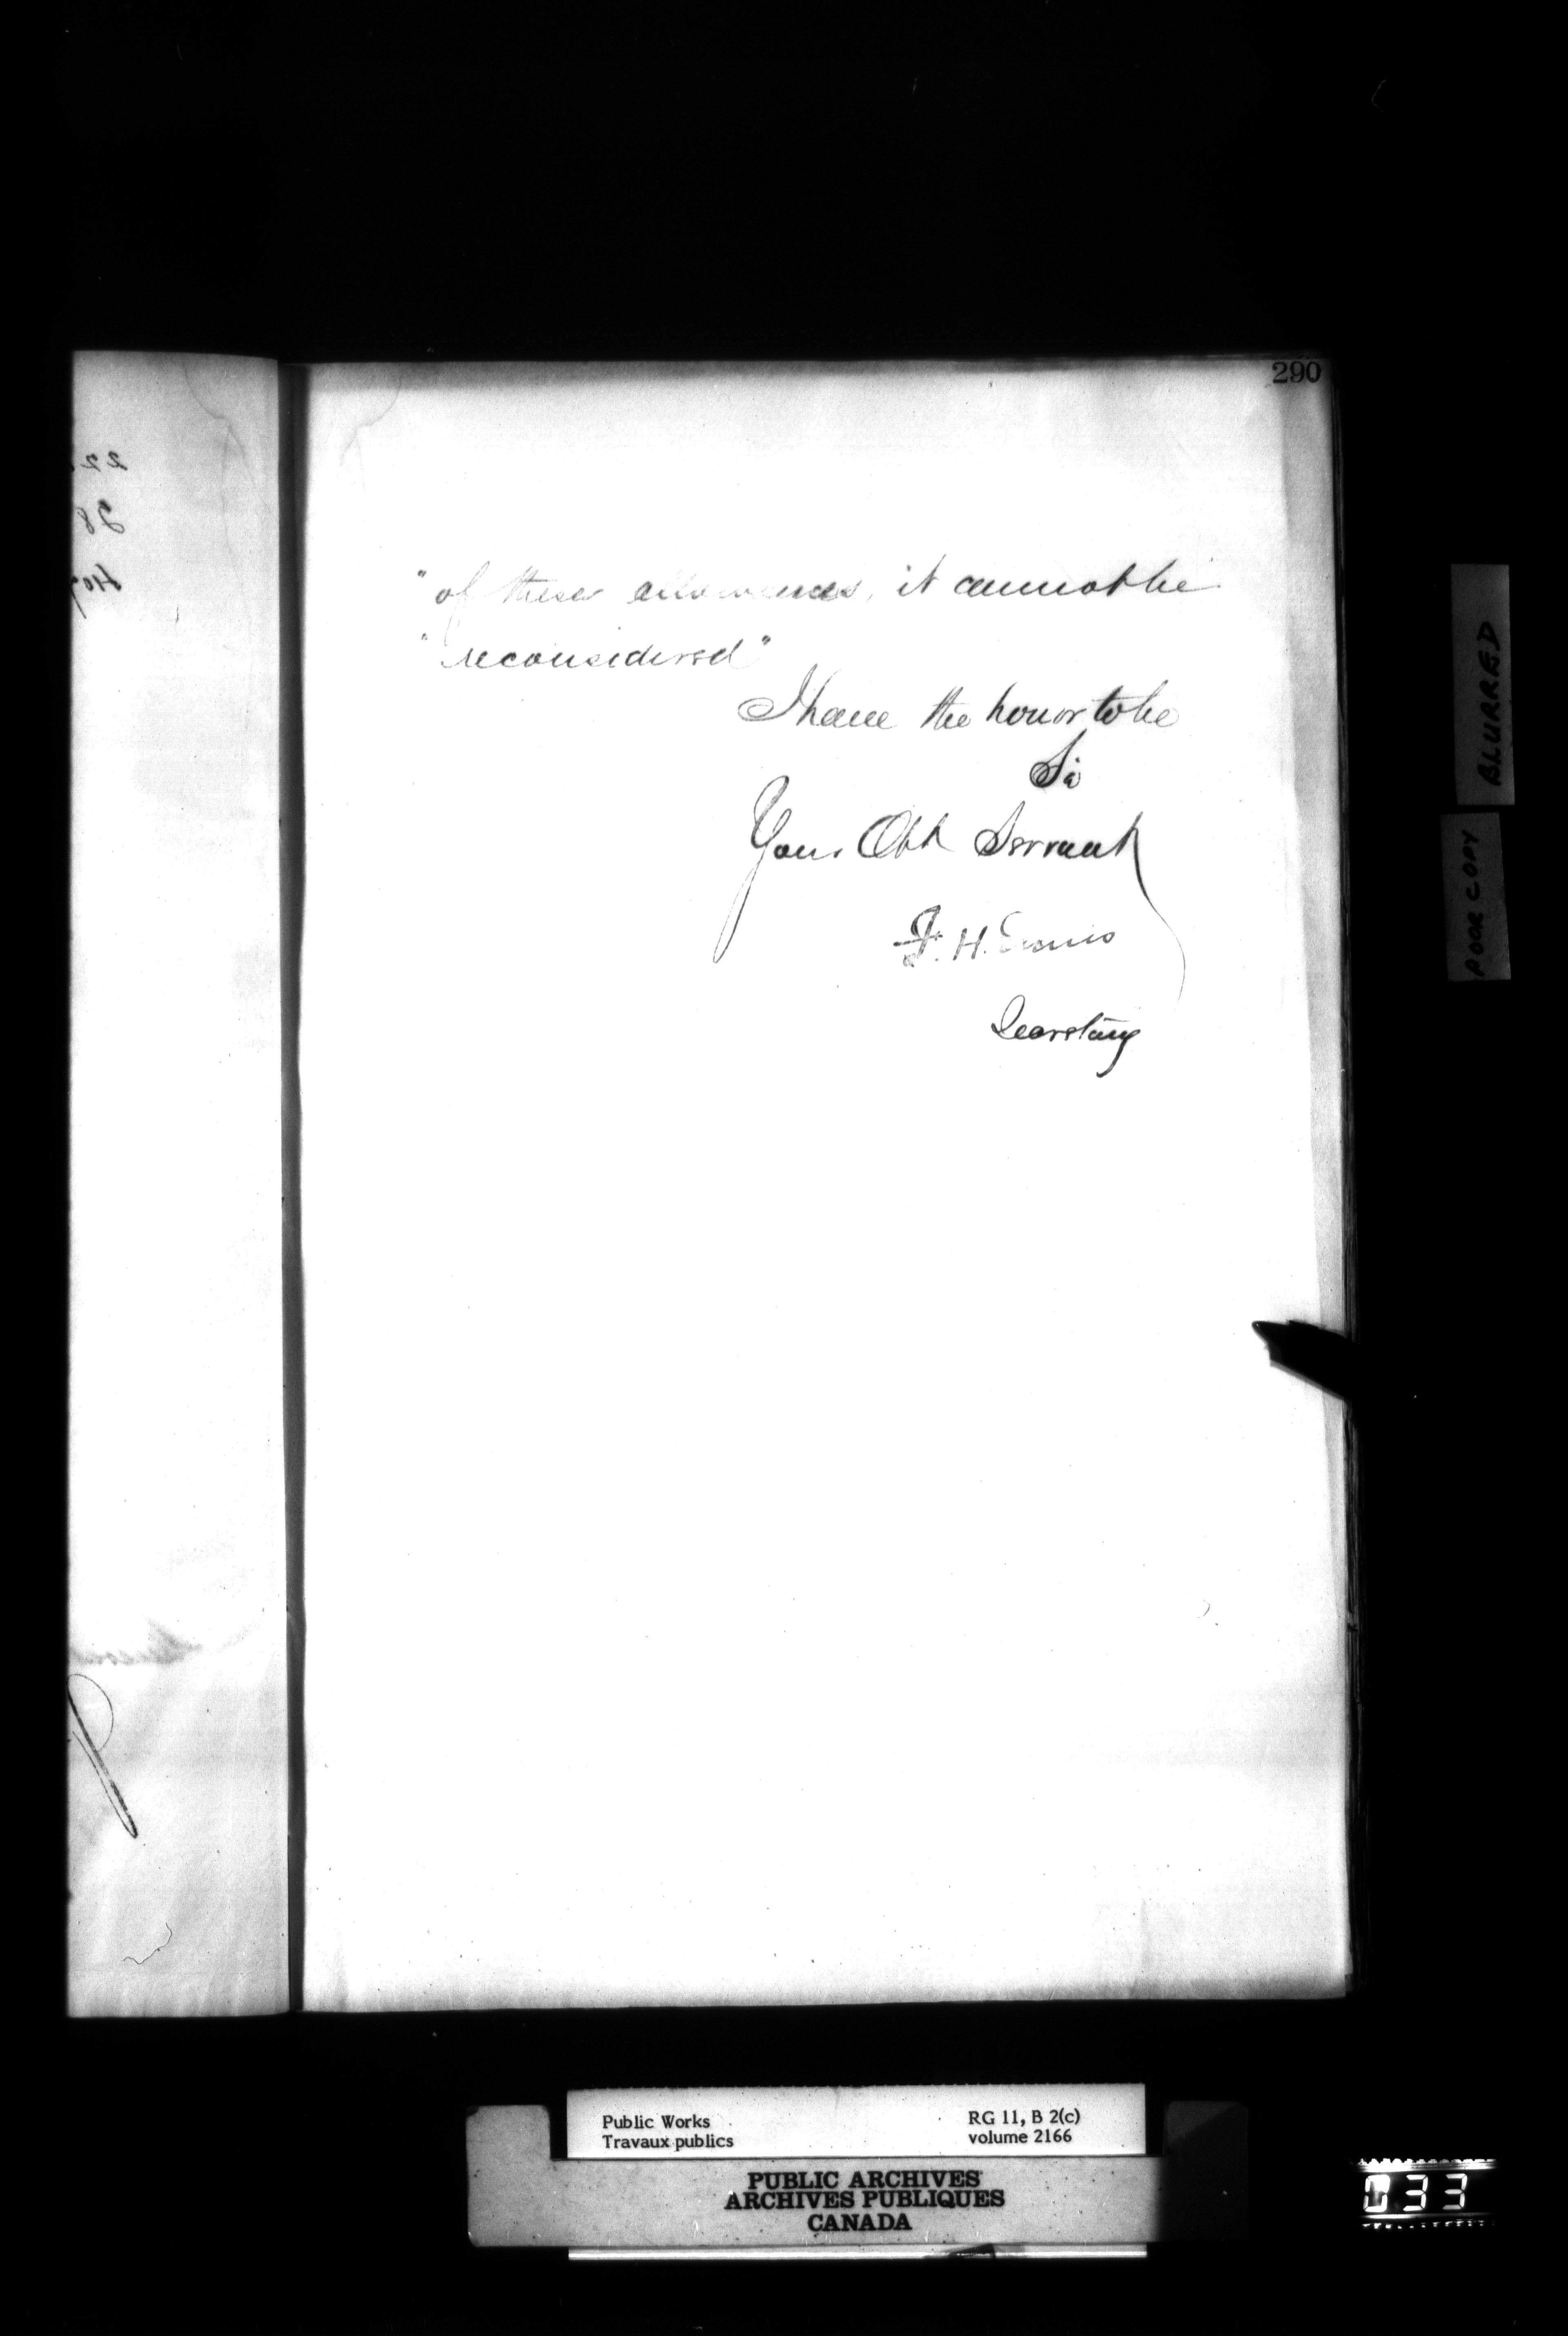 290
" of these allowances, it cannot be
" reconsidered"
I have the honor to be
Sir
Your Obt Servant
F. H. Ennis
Secretary
22
98
407
BLURRED
POOR COPY
Public Works
Travaux publics
RG 11, B 2(c)
volume 2166
PUBLIC ARCHIVES
ARCHIVES PUBLIQUES
CANADA
033